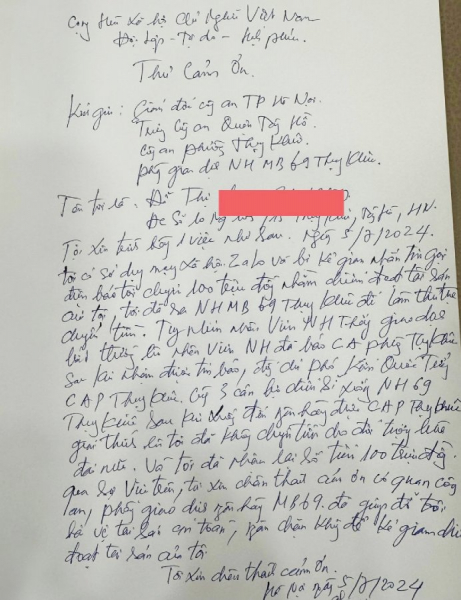 Cộng Hòa Xã hội Chủ Nghĩa Việt Nam
Độc lập - Tự do - Hạnh phúc
Thư Cảm Ơn.
Kính gửi: Giám đốc công an TP Hà Nội.
Trưởng Công an Quận Tây Hồ.
Công an phường Thụy Khuê.
phòng giao dịch NH MB 69 Thụy Khuê.
Tên tôi là: Đỗ Thị
Thụy Khuê, Tây Hồ, HN.
Tôi xin trình bày 1 việc như sau. Ngày 5/7/2024.
tôi có sử dụng mạng xã hội Zalo và bị kẻ gian nhắn tin gọi
điện bảo tôi chuyển 100 triệu đồng nhằm chiếm đoạt tài sản
của tôi, tôi đã ra NH MB 69 Thụy Khuê để làm thủ tục
chuyển tiền. Tuy nhiên nhân viên NH thấy giao dịch
bất thường lên nhân viên NH đã báo CA phường Thụy Khuê
Sau khi nhận được tin báo, đồng chí phó
CAP Thụy Khuê. Cùng 3 cán bộ đến xuống NH 69
Thụy Khuê sau khi ngân hàng được CAP Thụy Khuê
giải thích là tôi đã không chuyển tiền cho đối tượng lừa
đảo nữa. Và tôi đã nhận lại số tiền 100 triệu đồng.
qua sự việc trên, tôi xin chân thành cảm ơn cơ quan công
an, phòng giao dịch ngân hàng MB 69. đã giúp đỡ tôi
bảo vệ tài sản an toàn, ngăn chặn không để kẻ gian chiếm
đoạt tài sản của tôi
Tôi xin chân thành cảm ơn.
Hà Nội ngày 5/7/2024